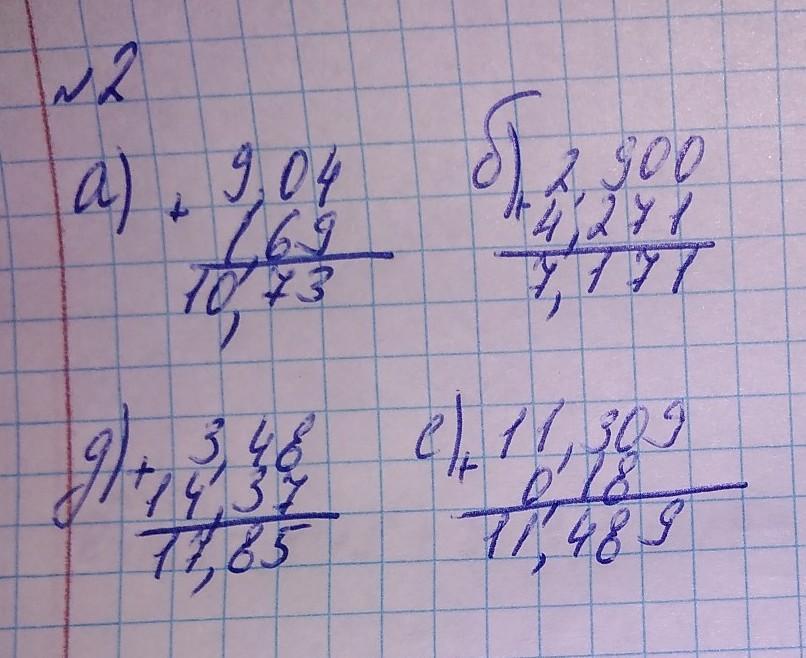 №2
а) + 9,04
1,69
10,73
б) + 2,900
4,271
7,171
д) + 3,48
14,37
17,85
е) + 11,309
0,18
11,489